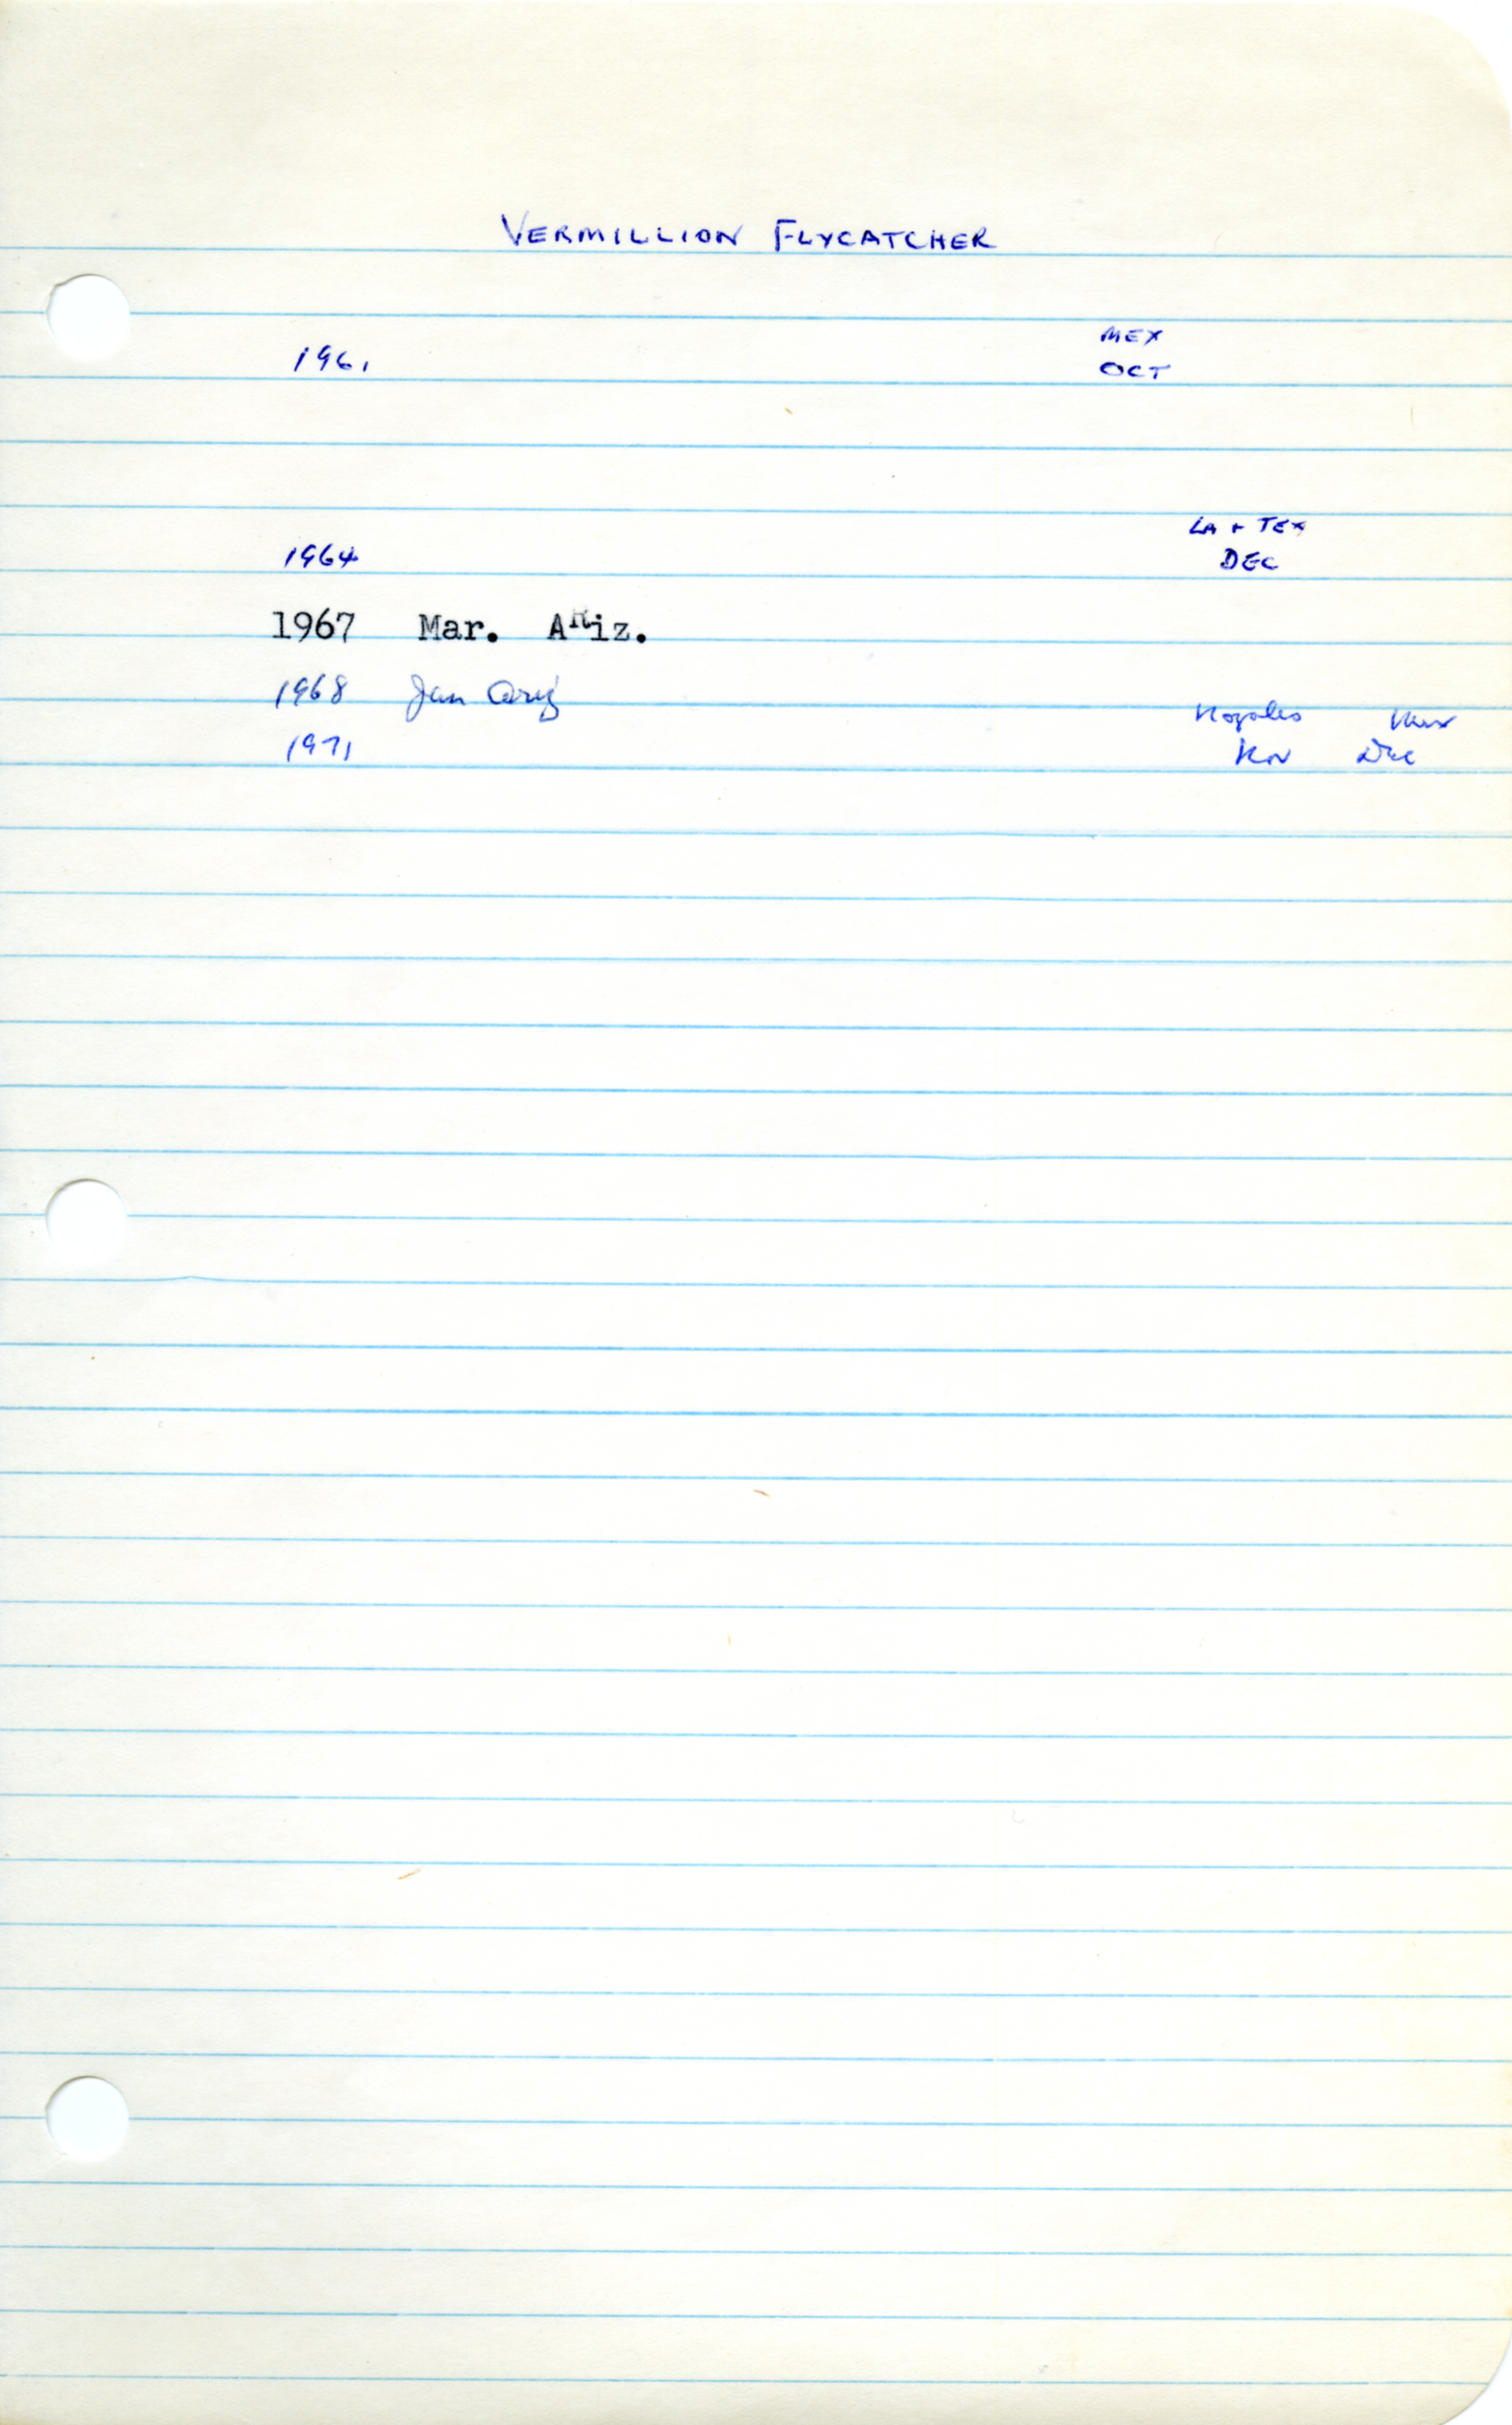 VERMILLION FLYCATCHER
MEX
1961 OCT
LA + TEX
1964 DEC
1967 Mar. ARiz.
1968 Jan Ariz
Nogales Mex
1971 Nov Dec